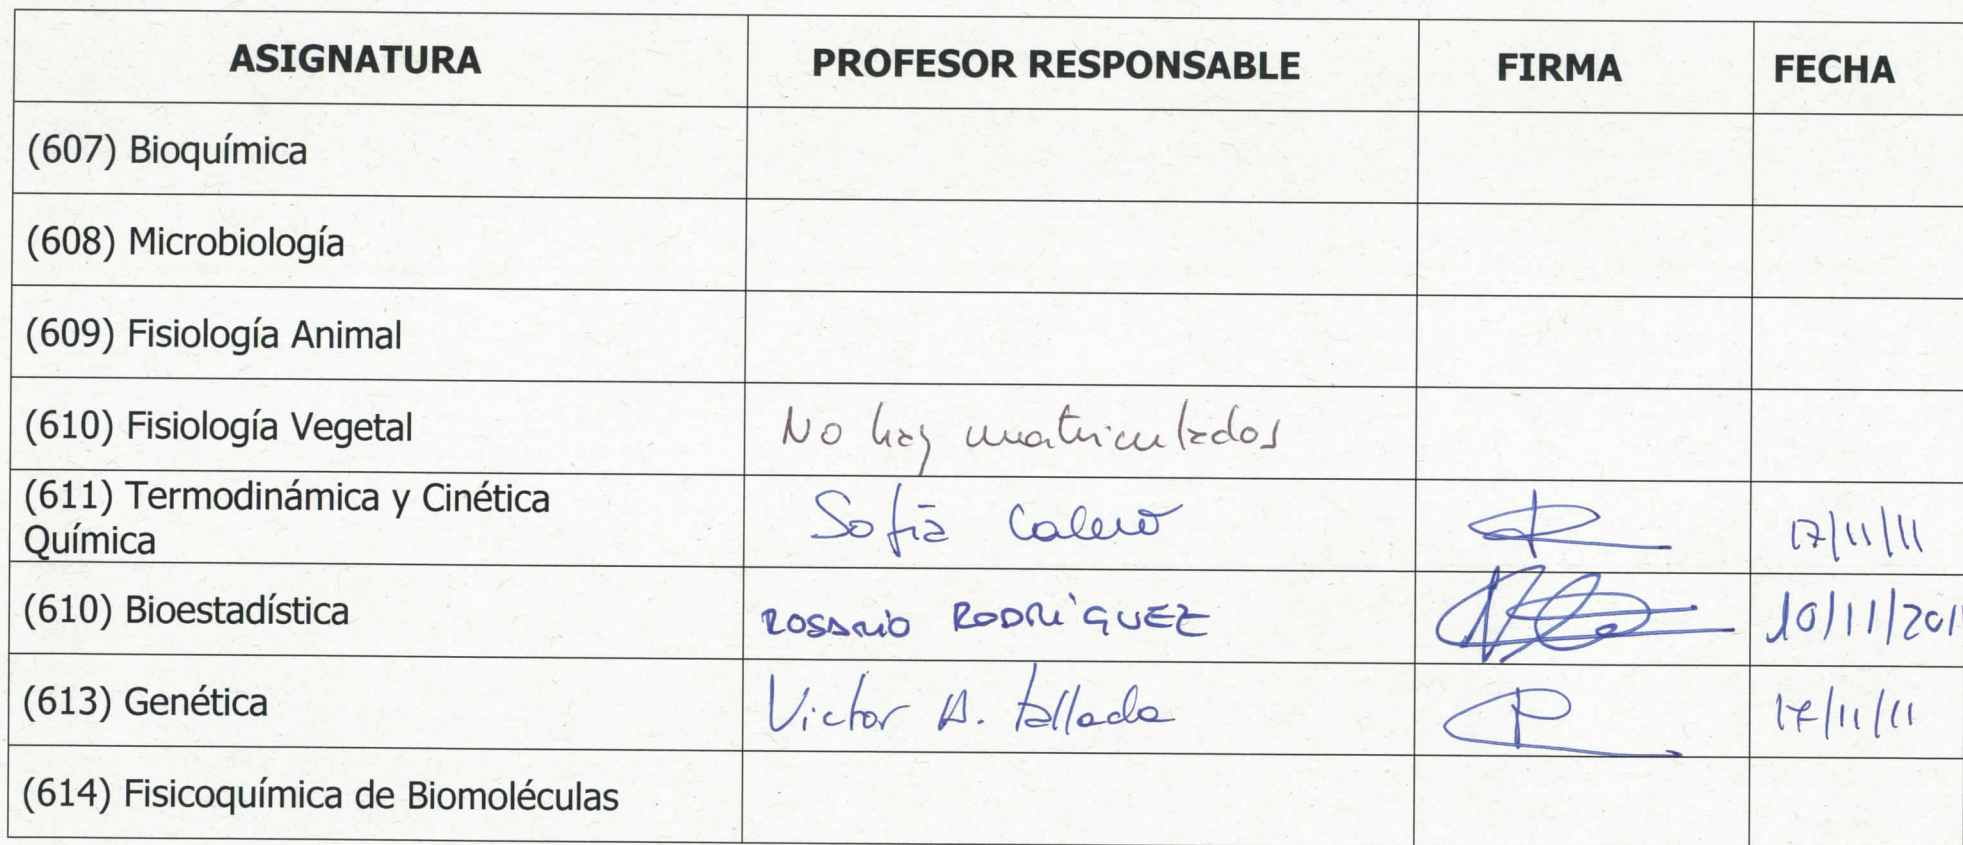 ASIGNATURA PROFESOR RESPONSABLE FIRMA FECHA
(607) Bioquímica
(608) Microbiología
(609) Fisiología Animal
(610) Fisiología Vegetal No hay matriculados
(611) Termodinámica y Cinética
Química Sofía Calero 17/11/11
(610) Bioestadística ROSARIO RODRÍGUEZ 10/11/2011
(613) Genética Victor A. Tallada 17/11/11
(614) Fisicoquímica de Biomoléculas